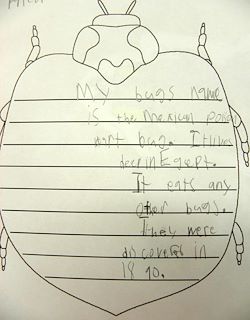 My bugs name
is the mexican
bug. It lives
deep in Egept.
It eats any
other bugs.
they were
discovered in
18 90.